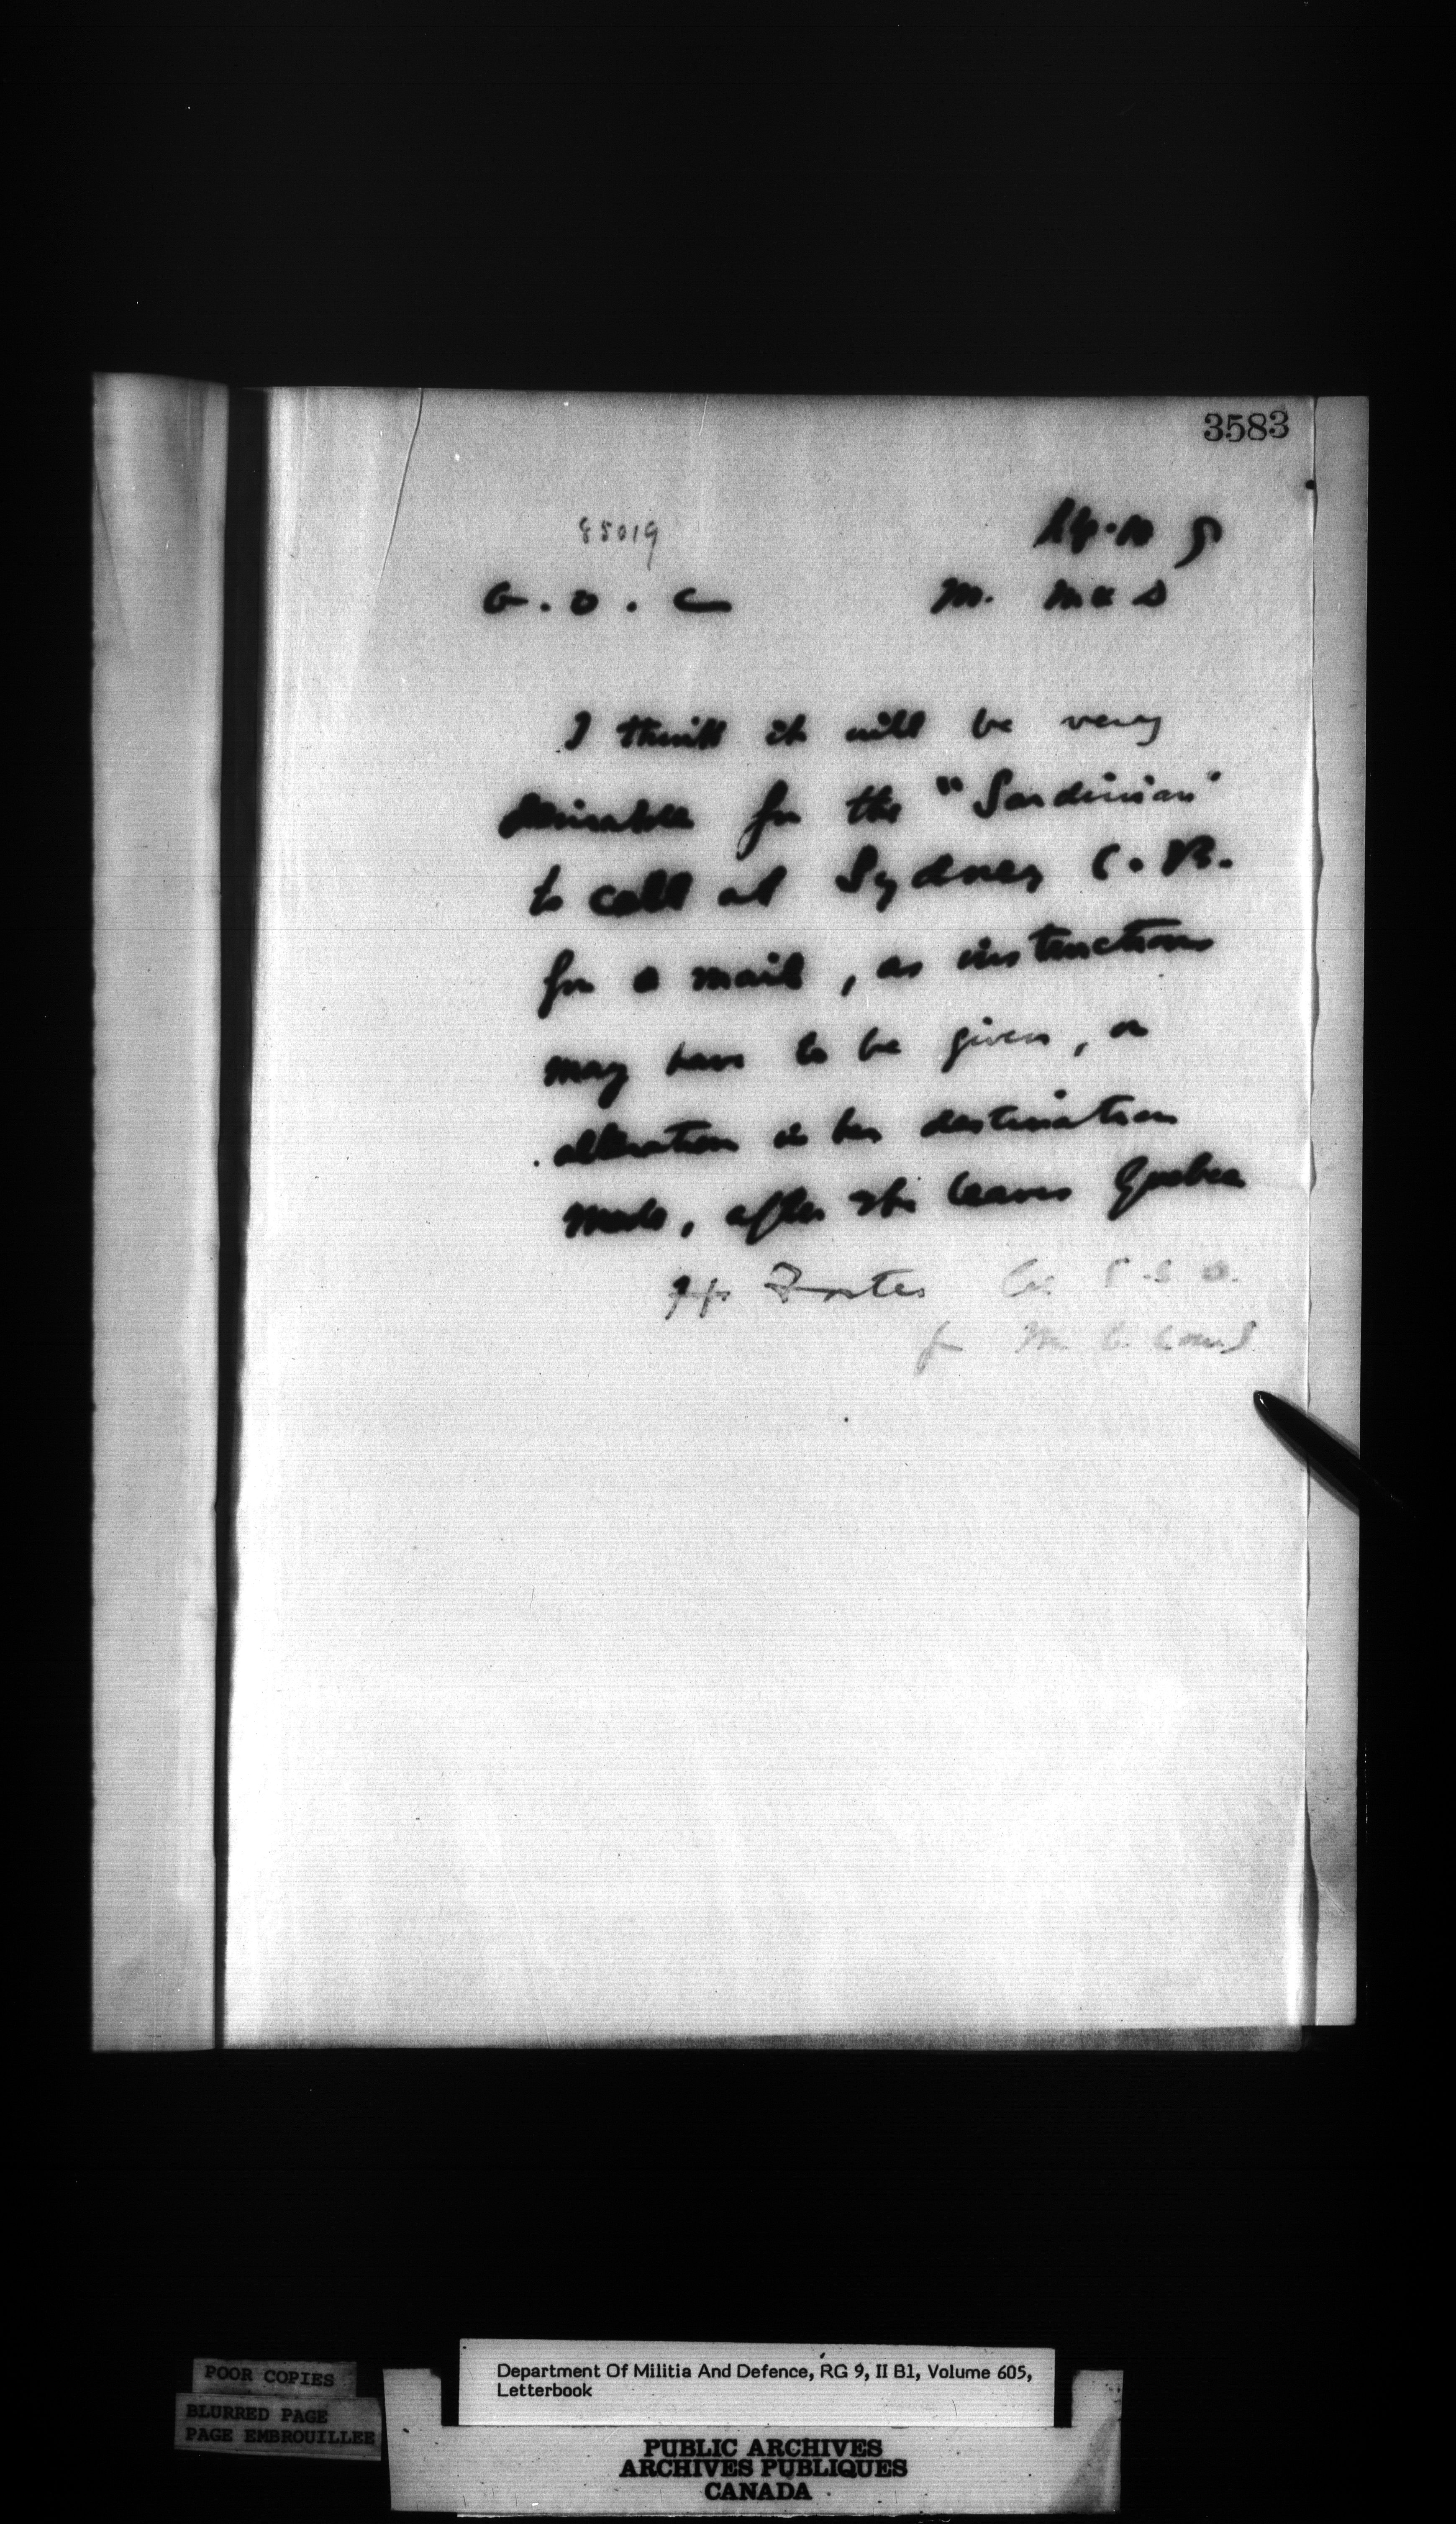 3583
85019
G. O. C
M.
I think it will be very
desirable for the "Sardinian"
to call at Sydney C. B.
for a mail, as instructions
may have to be given, or
alteration in her destination
made, after she leaves Quebec
Foster
for
Department Of Militia And Defence, RG 9, II B1, Volume 605,
Letterbook
POOR COPIES
BLURRED PAGE
PAGE EMBROUILLEE
PUBLIC ARCHIVES
ARCHIVES PUBLIQUES
CANADA